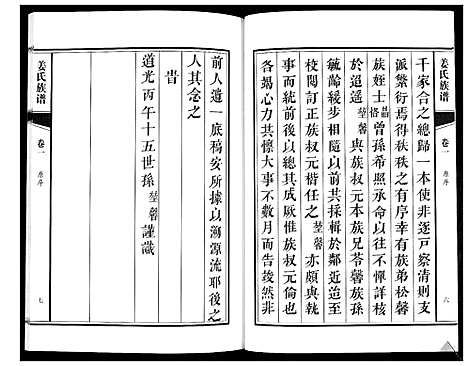 姜氏族谱
卷一
原序
六
千家合之總歸一本使非逐戶察清則支
派繁衍焉得秩秩之有序幸有族弟松馨
族姪士喆格曾孫希照承命以往不憚詳核
於迢遥𦼮馨與族叔元本族兄苓馨族孫
毓齡緩步相隨以前共採輯於鄰近迨至
校閱訂正族叔元楷任之𦼮馨亦頗與執
事而統其前後以成厥惟族叔元倫也爾
各竭心力共懷大事不數月而告竣然非
前人遺一底稿安所據以溯源流耶後之
人其念之
旹
道光丙午十五世孫𦼮馨謹識
姜氏族谱
卷一
原序
七